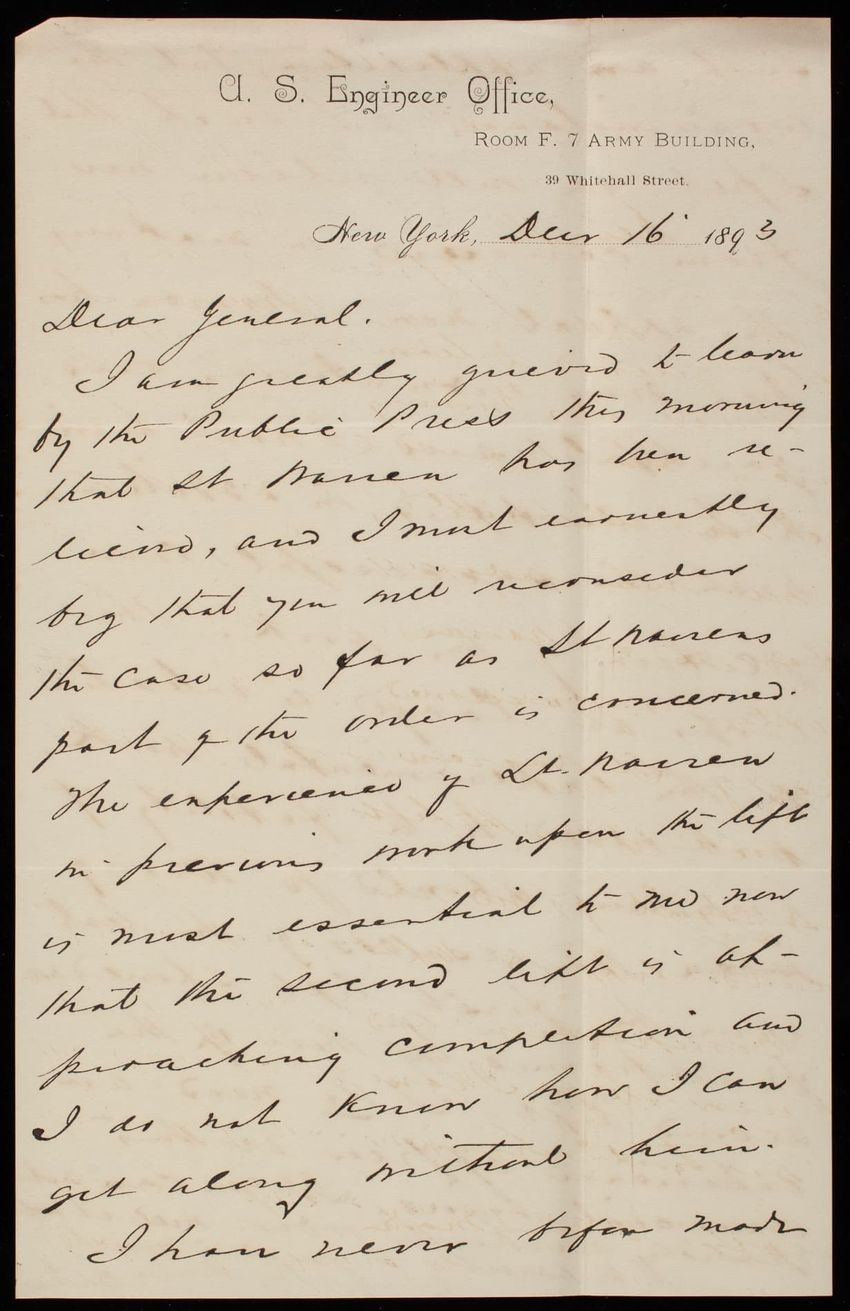 U. S. Engineer Office,
ROOM F. 7 ARMY BUILDING,
39 Whitehall Street.
New York, Decr 16 1893
Dear General.
I am greatly grieved to learn
by the Public Press this morning
that Lt Warren has been re-
lieved, and I most earnestly
beg that you will reconsider
the case so far as Lt Warrens
part of the order is concerned.
The experience of Lt. Warren
in previous work upon the lift
is most essential to me now
that the second lift is ap-
proaching completion and
I do not know how I can
get along without him.
I have never before made